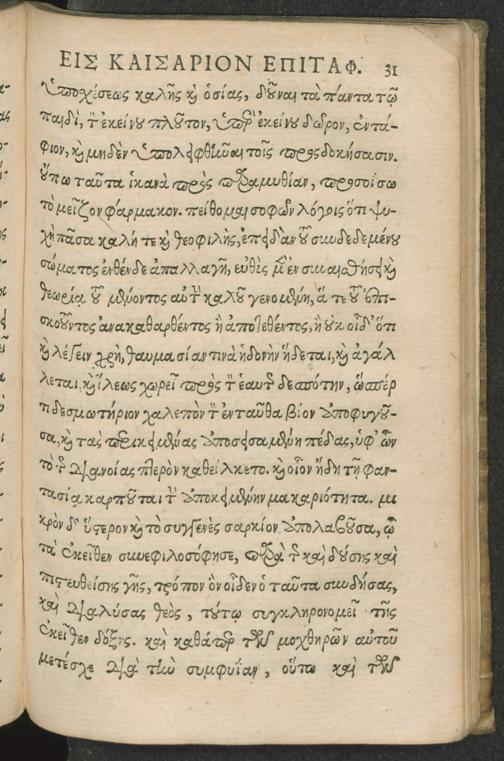 ΕΙΣ ΚΑΙΣΑΡΙΟΝ ΕΠΙΤΑΦ. 31
ὑποσχέσεως καλῆς κỳ ὁσίας, δοῦναι τὰ πάντα τῷ
παιδί, τ̀ ἐκείνου πλοῦτον, ὑπὲρ ἐκείνου δῶρον, ἐντά-
φιον, κỳ μηδὲν ὑπολειφθῆναι τοῖς προσδοκήσασιν.
οὔπω ταῦτα ἱκανὰ πρὸς παραμυθίαν, προσοίσω
τὸ μεῖζον φάρμακον. πείθομαι σοφῶν λόγοις ὅτι ψυ-
χὴ πᾶσα καλή τε κỳ θεοφιλής, ἐπειδὰν τοῦ συνδεδεμένου
σώματος ἐνθένδε ἀπαλλαγῇ, εὐθὺς μὲν ἐν συναισθήσει κỳ
θεωρίᾳ τοῦ μένοντος αὐτὴν καλοῦ γενομένη, ἅ τε τοῦ ἐπι-
σκοτοῦντος ἀνακαθαρθέντος ἢ ἀποτεθέντος, ἢ οὐκ οἶδ' ὅτι
κỳ λέγειν χρὴ, θαυμασίαν τινὰ ἡδονὴν ἥδεται, κỳ ἀγάλ
λεται, κỳ ἵλεως χωρεῖ πρὸς τὸν ἑαυτῆς δεσπότην, ὥσπερ
τι δεσμωτήριον χαλεπὸν τὸν ἐνταῦθα βίον ἀποφυγοῦ-
σα, κỳ τὰς περικειμένας ἀποσεισαμένη πέδας, ὑφ' ὧν
τὸ τῆς διανοίας πτερὸν καθείλκετο. κỳ οἷον ἤδη τῇ φαν-
τασίᾳ καρποῦται τὴν ἀποκειμένην μακαριότητα. μι
κρὸν δ' ὕστερον κỳ τὸ συγγενὲς σαρκίον ἀπολαβοῦσα, ᾧ
τὰ ἐκεῖθεν συνεφιλοσόφησε, παρὰ τῆς καὶ δούσης καὶ
πιστευθείσης γῆς, τρόπον ὃν οἶδεν ὁ ταῦτα συνδήσας,
καὶ διαλύσας θεὸς, τούτῳ συγκληρονομεῖ τῆς
ἐκεῖθεν δόξης. καὶ καθάπερ τῶν μοχθηρῶν αὐτοῦ
μετέσχε διὰ τὴν συμφυΐαν, οὕτω καὶ τῶν